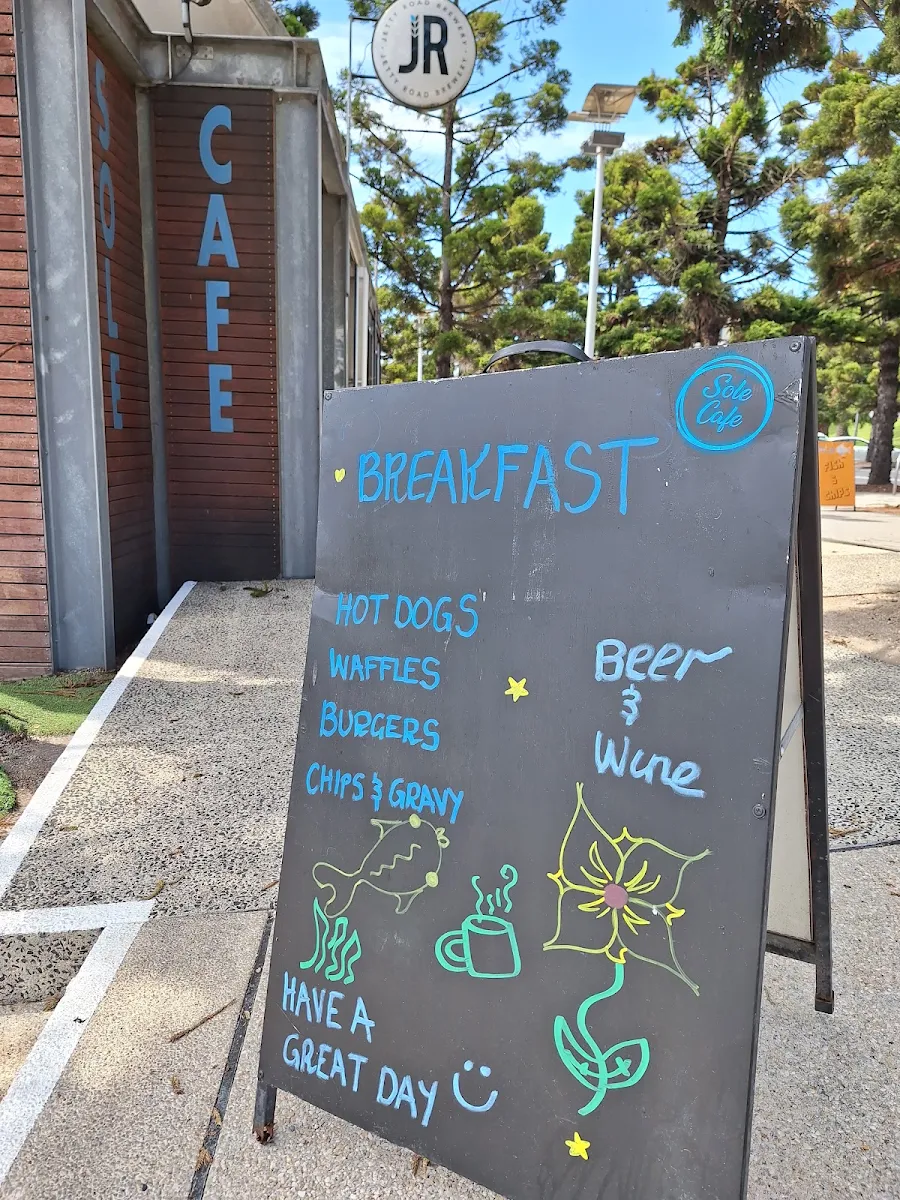 JR
JETTY ROAD BREWERY
SOLE
CAFE
Sole
Cafe
BREAKFAST
FISH
&
CHIPS
HOT DOGS
WAFFLES
BURGERS
CHIPS & GRAVY
Beer
&
Wine
HAVE A
GREAT DAY